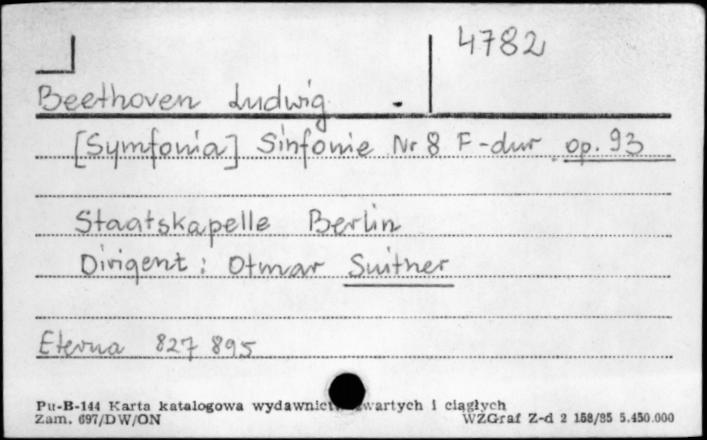 4782
Beethoven Ludwig
[Symfonia] Sinfonie Nr 8 F-dur op. 93
Staatskapelle Berlin
Dirigent: Otmar Suitner
Eterna 827 895
Pu-B-144 Karta katalogowa i ciągłych
Zam. 697/DW/ON WZGraf Z-d 2 158/85 5.450.000